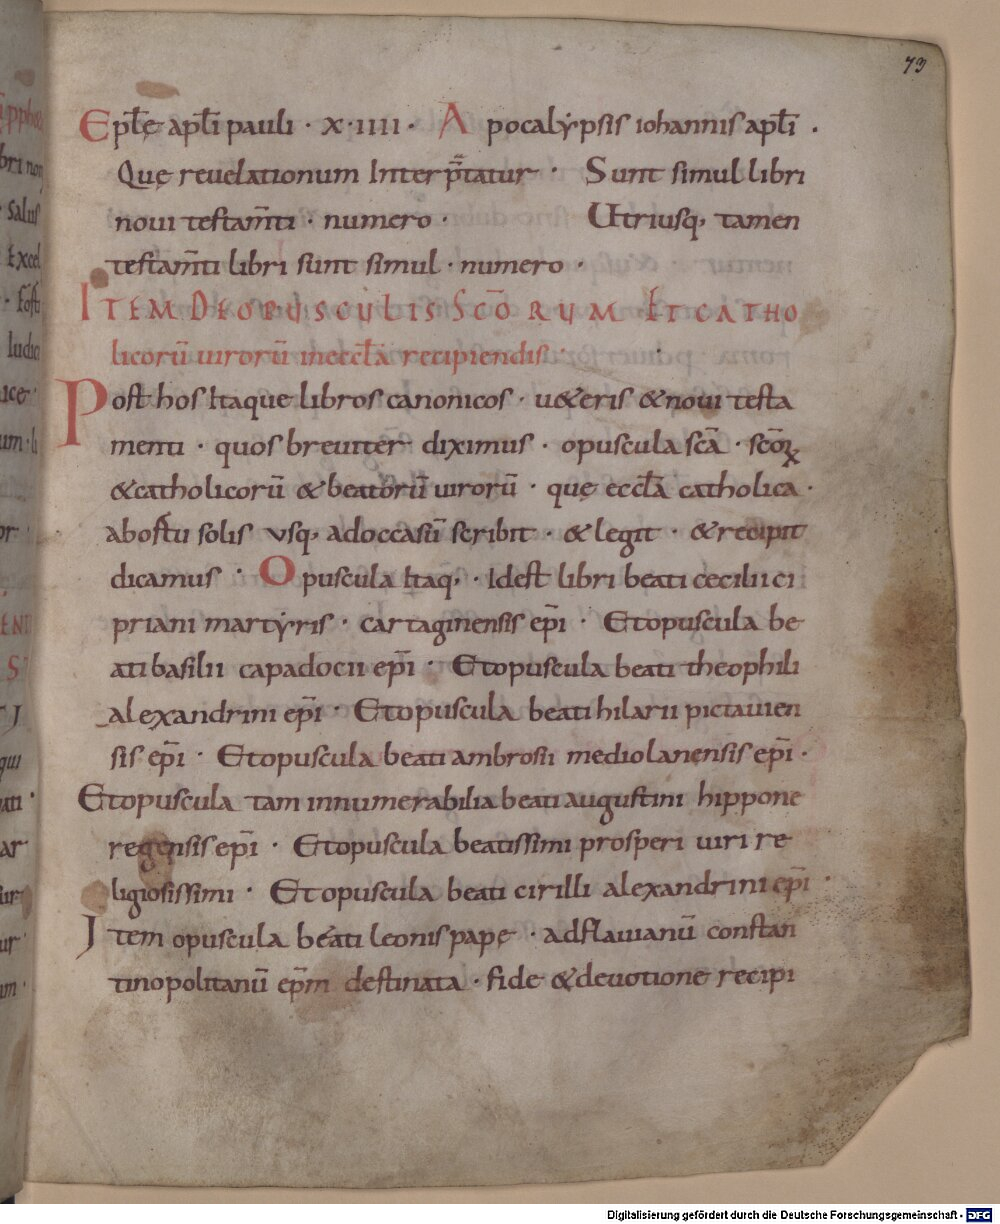 73
Epłę apłi pauli · x·iiii · Apocalẏpsis iohannis apłi ·
Quę reuelationum Interp̄tatur · Sunt simul libri
noui testam̄ti · numero · Utriusq, tamen
testam̄ti libri sunt simul · numero ·
ITEM DEOPUSCULIS SCŌRUM ET CATHO
licorū uirorū ineccła recipiendis:
Post hos Itaque libros canonicos · u&eris &noui testa
menti · quos breuiter diximus · opuscula scā · scōꝝ
&catholicorū &beatorū uirorū · quę eccła catholica ·
abostu solis vsq, adoccasū scribit · & legit · & recipit
dicamus · Opuscula Itaq, · Idest libri beati cecilii ci
priani martẏris · cartaginensis ep̄i · Etopuscula be
ati basilii capadocii ep̄i · Etopuscula beati theophili
alexandrini ep̄i · Etopuscula beati hilarii pictauien
sis ep̄i · Etopuscula beati ambrosii mediolanensis ep̄i ·
Etopuscula tam innumerabilia beati augustini hippone
regensis ep̄i · Etopuscula beatissimi prosperi uiri re
ligiosissimi · Et opuscula beati cirilli alexandrini ep̄i ·
Item opuscula beati leonis papę · adflauianū constan
tinopolitanū ep̄m destinata · fide &deuotione recipi
Digitalisierung gefördert durch die Deutsche Forschungsgemeinschaft - DFG